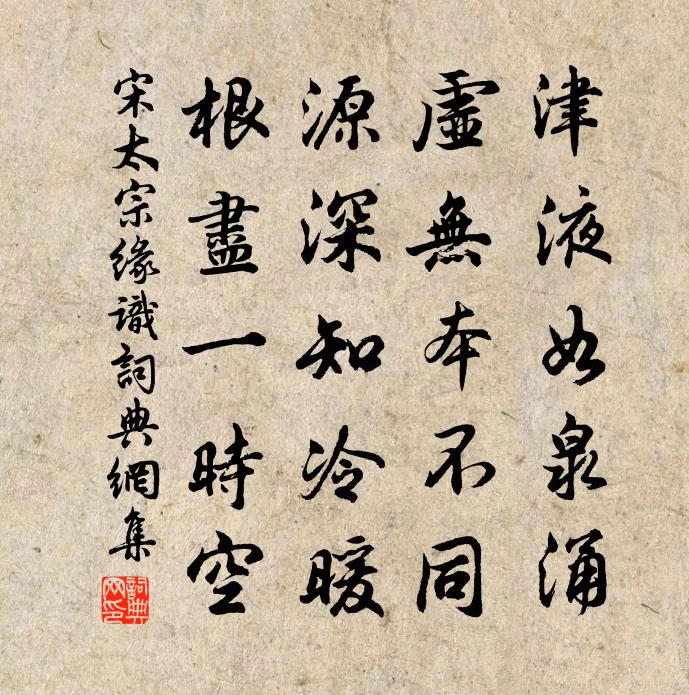 津液如泉涌
虛無本不同
源深知冷暖
根盡一時空
宋太宗緣識詞典網集
詞典網印